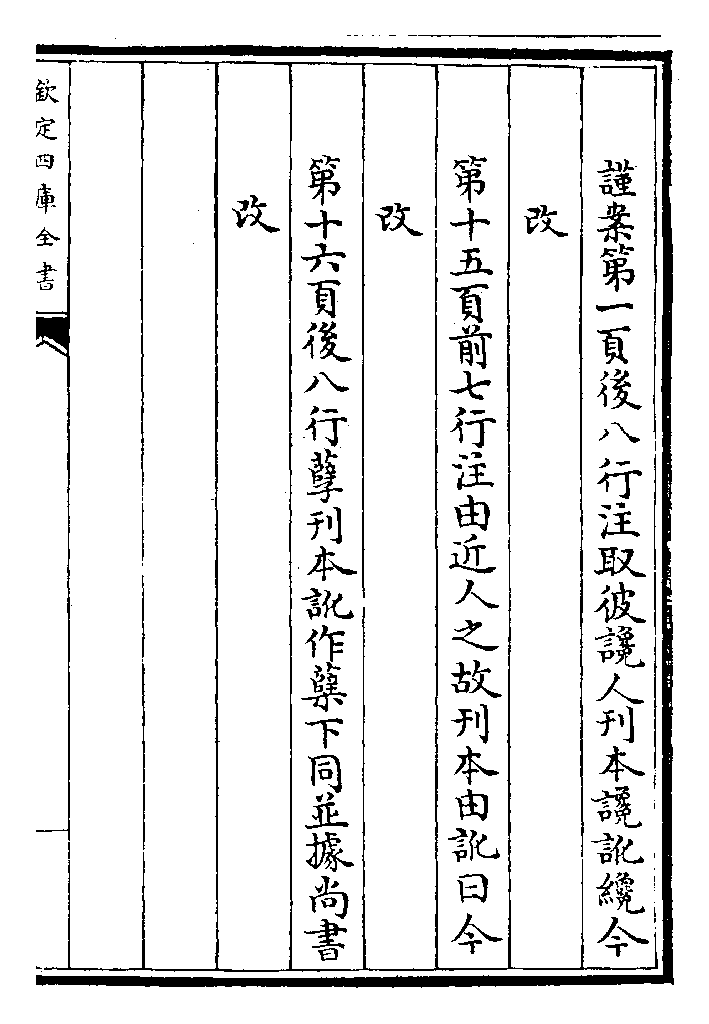 謹案第一頁後八行注取彼讒人刊本讒訛纔今
改
第十五頁前七行注由近人之故刊本由訛曰今
改
第十六頁後八行孽刊本訛作蘖下同並據尚書
改
欽定四庫全書